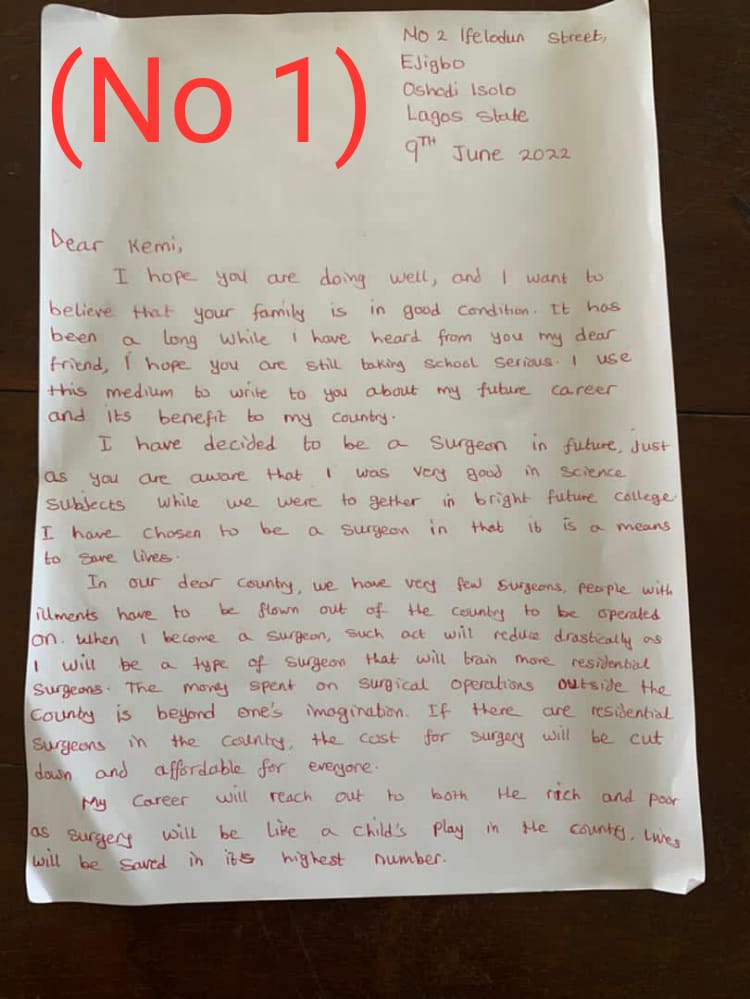 (No 1)
No 2 Ifelodun street,
Ejigbo
Oshodi Isolo
Lagos state
9TH June 2022
Dear Kemi,
I hope you are doing well, and I want to
believe that your family is in good condition. It has
been a long while I have heard from you my dear
friend, I hope you are still taking school serious. I use
this medium to write to you about my future career
and its benefit to my country.
I have decided to be a surgeon in future, just
as you are aware that I was very good in science
subjects while we were to gether in bright future college.
I have chosen to be a surgeon in that it is a means
to save lives.
In our dear country, we have very few surgeons, people with
illments have to be flown out of the country to be operated
on. When I become a surgeon, such act will reduce drastically as
I will be a type of surgeon that will train more residential
surgeons. The money spent on surgical operations outside the
county is beyond one's imagination. If there are residential
surgeons in the country, the cost for surgery will be cut
down and affordable for everyone.
My career will reach out to both the rich and poor
as surgery will be like a child's play in the country. Lives
will be saved in its highest number.